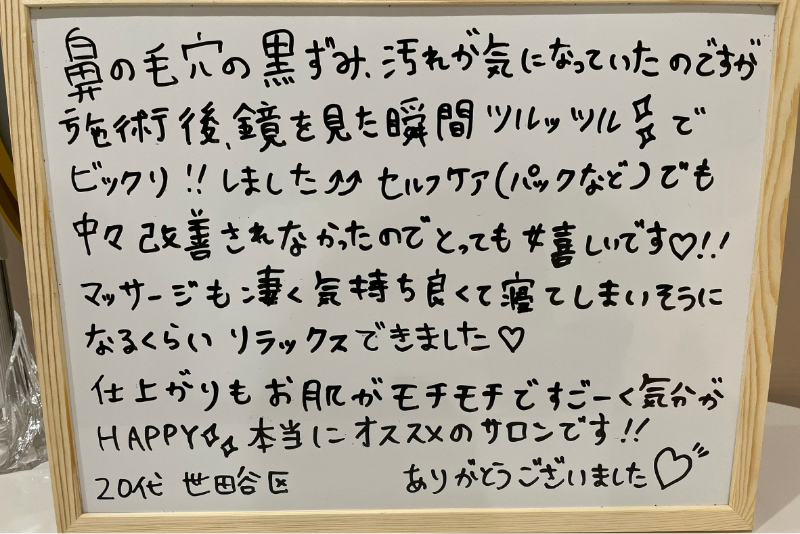 鼻の毛穴の黒ずみ、汚れが気になっていたのですが
施術後、鏡を見た瞬間ツルッツル✨で
ビックリ!!しました⤴⤴ セルフケア(パックなど)でも
中々改善されなかったのでとっても嬉しいです♡!!
マッサージも凄く気持ち良くて寝てしまいそうに
なるくらいリラックスできました♡
仕上がりもお肌がモチモチですごーく気分が
HAPPY✨本当にオススメのサロンです!!
20代 世田谷区 ありがとうございました♡